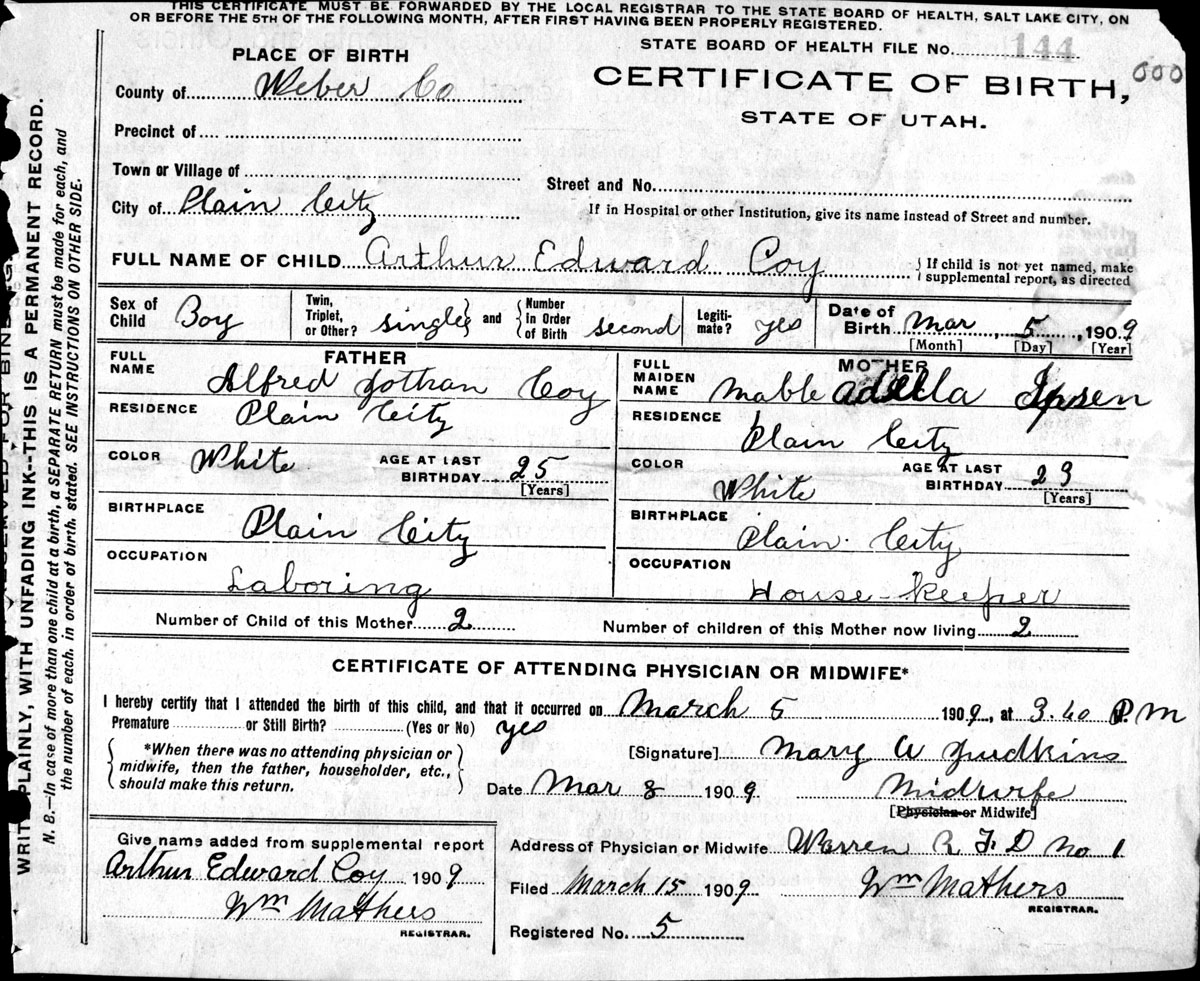 THIS CERTIFICATE MUST BE FORWARDED BY THE LOCAL REGISTRAR TO THE STATE BOARD OF HEALTH, SALT LAKE CITY, ON
OR BEFORE THE 5TH OF THE FOLLOWING MONTH, AFTER FIRST HAVING BEEN PROPERLY REGISTERED.
STATE BOARD OF HEALTH FILE NO. 144
000
PLACE OF BIRTH
CERTIFICATE OF BIRTH,
STATE OF UTAH.
County of Weber Co
Precinct of
Town or Village of
Street and No.
City of Plain City
If in Hospital or other Institution, give its name instead of Street and number.
FULL NAME OF CHILD Arthur Edward Coy
If child is not yet named, make
supplemental report, as directed
Sex of Child Boy
Twin, Triplet, or Other? single and Number in Order of Birth second
Legiti-mate? yes
Date of Birth Mar 5, 1909
[Month] [Day] [Year]
FATHER
FULL NAME Alfred Jothan Coy
RESIDENCE Plain City
COLOR White AGE AT LAST BIRTHDAY 25
[Years]
BIRTHPLACE Plain City
OCCUPATION Laboring
MOTHER
FULL MAIDEN NAME Mable Adella Ipsen
RESIDENCE Plain City
COLOR White AGE AT LAST BIRTHDAY 23
[Years]
BIRTHPLACE Plain City
OCCUPATION House Keeper
Number of Child of this Mother 2
Number of children of this Mother now living 2
CERTIFICATE OF ATTENDING PHYSICIAN OR MIDWIFE*
I hereby certify that I attended the birth of this child, and that it occurred on March 5 1909, at 3.40 P.M
Premature or Still Birth? (Yes or No) yes
*When there was no attending physician or
midwife, then the father, householder, etc.,
should make this return.
[Signature] Mary A Judkins
Date Mar 8 1909 Midwife
[Physician or Midwife]
Give name added from supplemental report
Arthur Edward Coy 1909
Wm Mathers
REGISTRAR.
Address of Physician or Midwife Warren R F D No 1
Filed March 15 1909 Wm Mathers
REGISTRAR.
Registered No. 5
WRITE PLAINLY, WITH UNFADING INK--THIS IS A PERMANENT RECORD.
N. B.—In case of more than one child at a birth, a SEPARATE RETURN must be made for each, and
the number of each, in order of birth, stated. SEE INSTRUCTIONS ON OTHER SIDE.